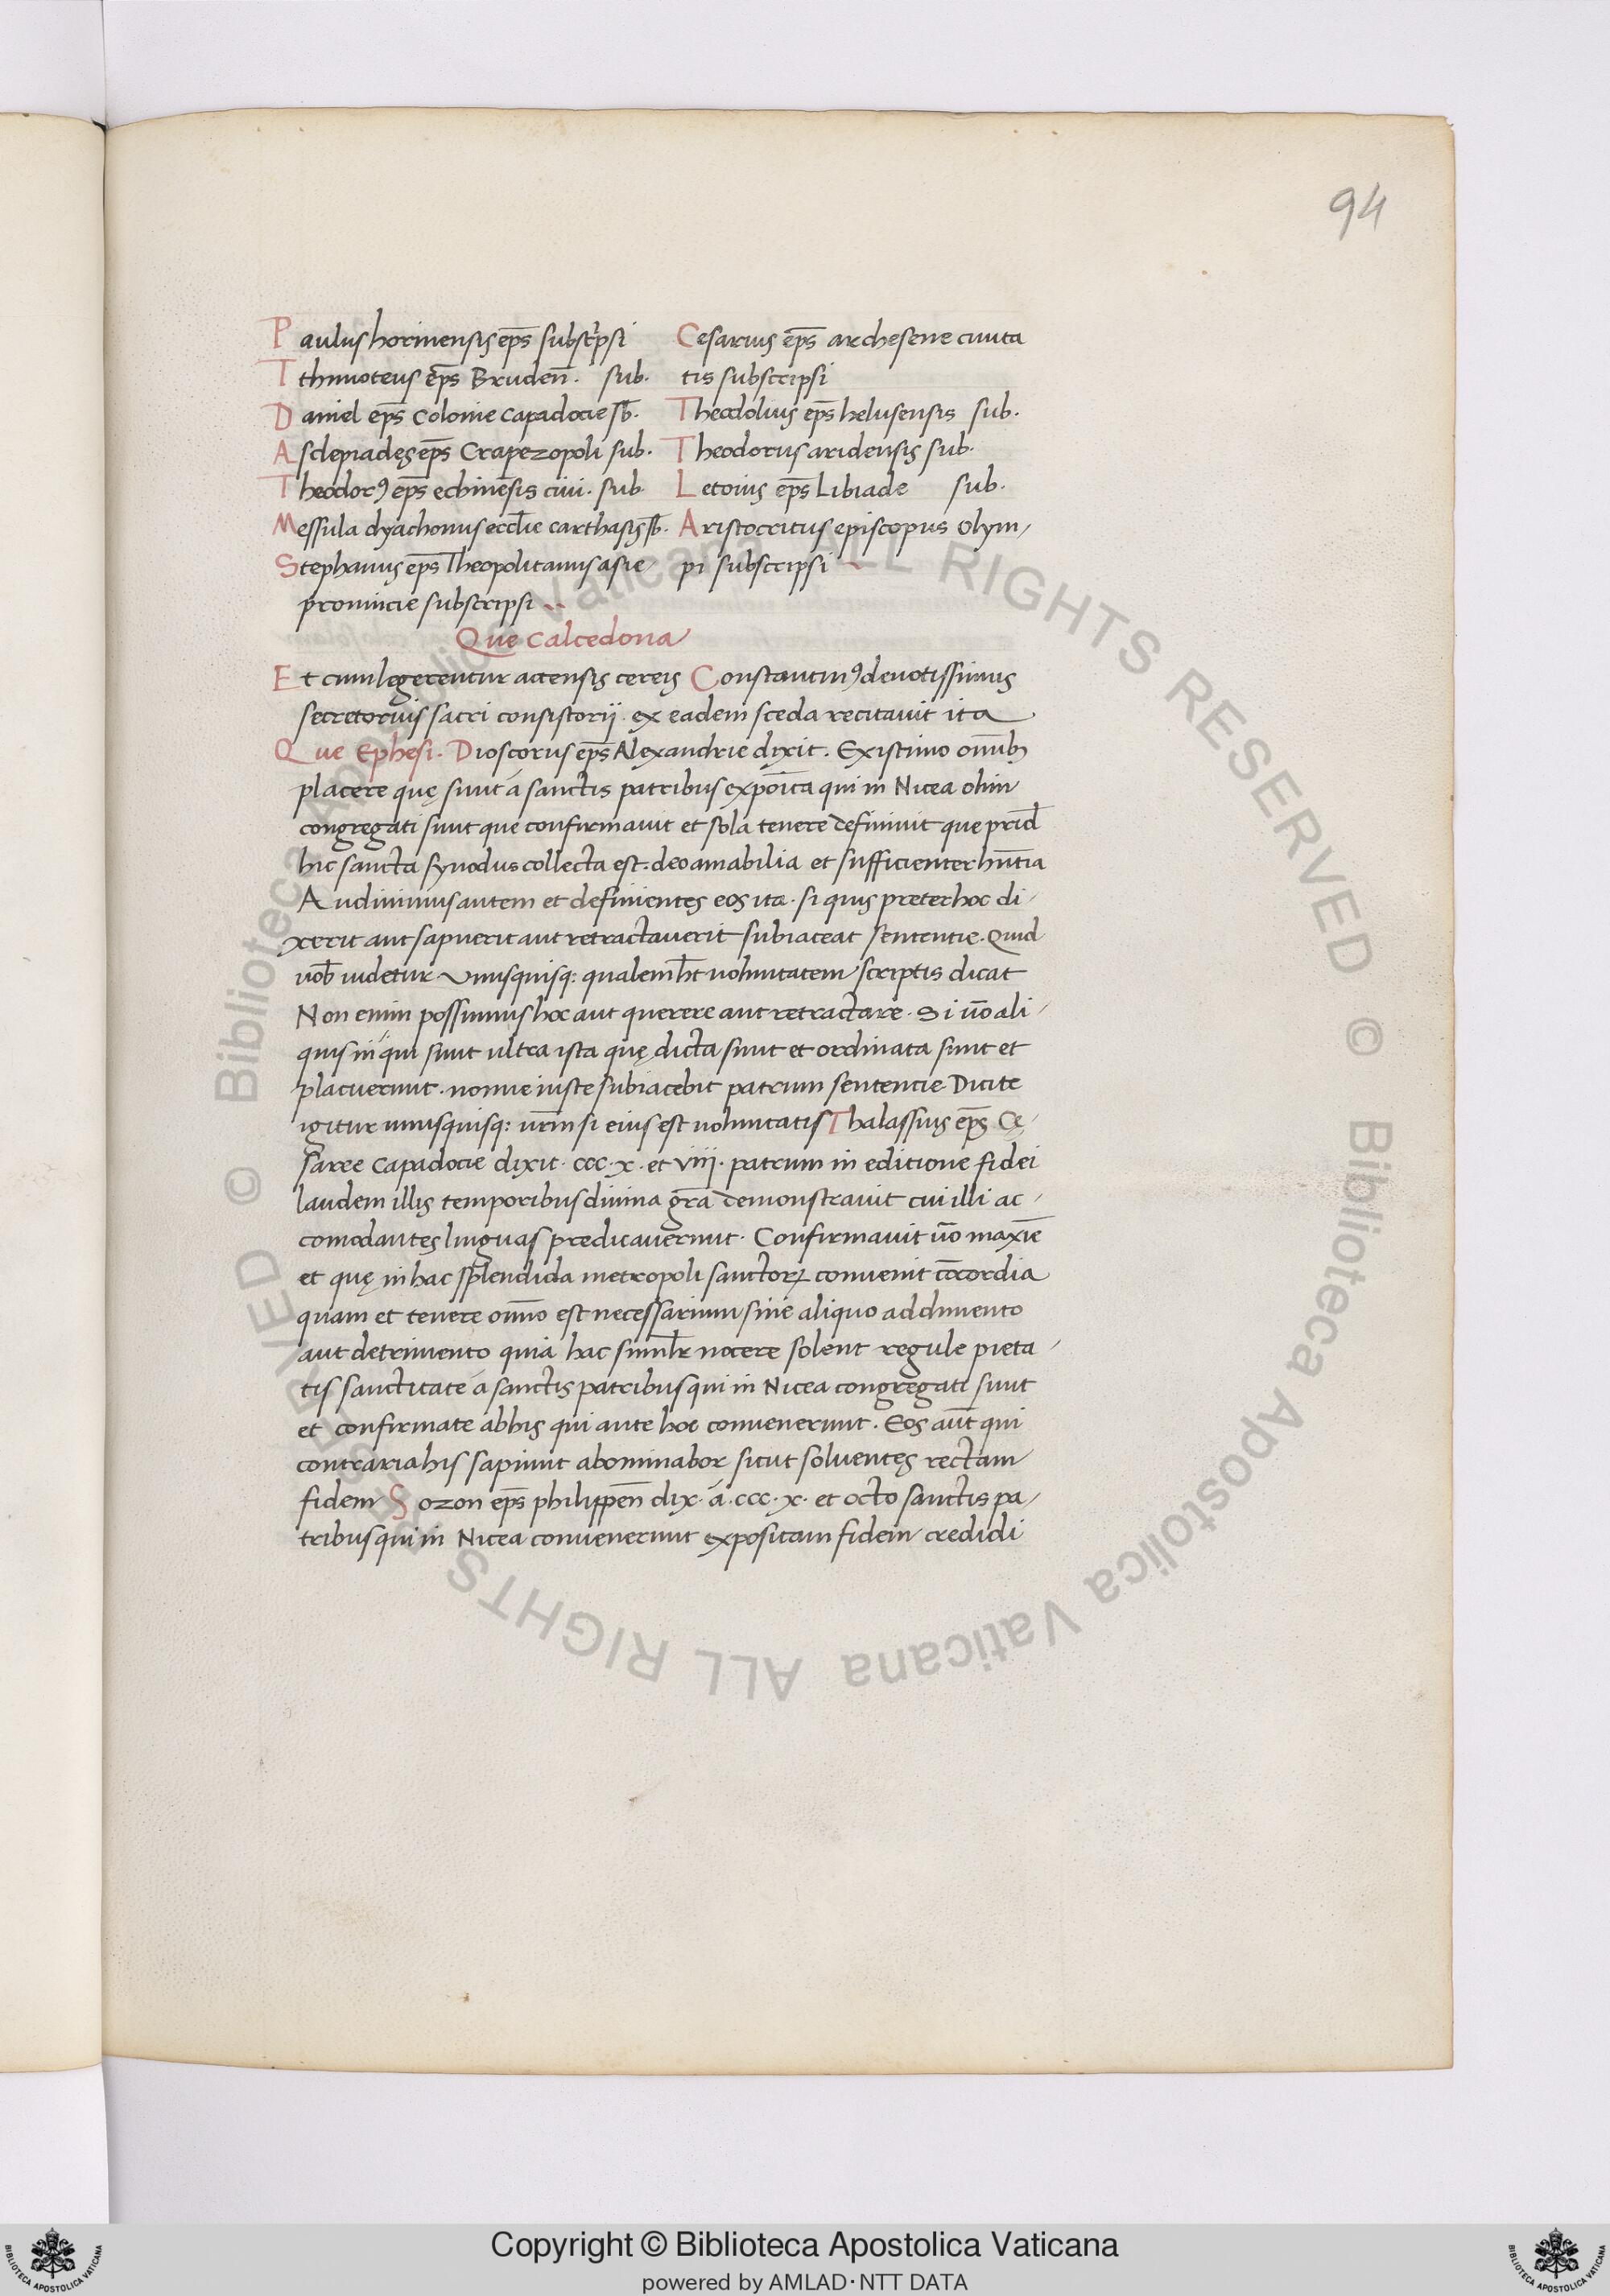 94
Paulus horinensis ep̄s subscͥpsi
Tthimoteus ep̄s Bruden̄. sub.
Daniel ep̄s Colonie Capadocie sb̄.
Asclepiades ep̄s Crapezopoli sub.
Theodorꝰ ep̄s echinēsis ciui. sub.
Messula dyachonus eccl̄ie carthasis sb̄.
Stephanus ep̄s Theopolitanus asie
prouincie subscripsi
Cesarius ep̄s archesene ciuita
tis subscripsi
Theodolius ep̄s helusensis sub.
Theodorus aridensis sub.
Letoius ep̄s Libiade sub.
Aristocritus episcopus Olym-
pi subscripsi
Que Calcedona
Et cum legerentur accensis cereis Constantinꝰ deuotissimus
secretorius sacri consistorij. ex eadem sceda recitauit ita
Que Ephesi. Dioscorus ep̄s Alexandrie dixit. Existimo om̄ibꝫ
placere quę sunt á sanctis patribus expoīta qui in Nicea olim
congregati sunt que confirmauit et sola tenere definiuit que prid̄
hic sancta synodus collecta est. deo amabilia et sufficienter hn̄tia
Audiuimus autem et definientes eos ita. si quis preter hoc di-
xerit aut sapuerit aut retractauerit subiaceat sententie. Quid
uob̄ uidetur. Vnusquisqꝫ qualem h̄t uoluntatem scriptis dicat
Non enim possumus hoc aut querere aut retractare. Si ūo ali-
quis in qui sunt ultra ista quę dicta sunt et ordinata sunt et
placuerunt. nonne iuste subiacebit patrum sentencie. Dicite
igitur unusquisqꝫ ur̄m si eius est uoluntatis Thalassius ep̄s Ce-
saree Capadocie dixit. ccc. x. et viij. patrum in editione fidei
laudem illis temporibus diuina gr̄a demonstrauit cui illi ac-
comodantes linguas predicauerunt. Confirmauit ūo maxīe
et quę in hac splendida metropoli sanctorꝝ conuenit cōcordia
quam et tenere om̄o est necessarium sine aliquo addimento
aut detrimento quia hac simil̄r nocere solent regule pieta-
tis sanctitate á sanctis patribus qui in Nicea congregati sunt
et confirmate abhis qui ante hoc conuenerunt. Eos aūt qui
contraria his sapiunt abominabor sicut soluentes rectam
fidem Sozon ep̄s philippen̄ dix. á. ccc. x. et octo sanctis pa-
tribus qui in Nicea conuenerunt expositam fidem credidi
© Biblioteca Apostolica Vaticana ALL RIGHTS RESERVED © Biblioteca Apostolica Vaticana ALL RIGHTS RESERVED
Copyright © Biblioteca Apostolica Vaticana
powered by AMLAD·NTT DATA
BIBLIOTECA APOSTOLICA VATICANA
BIBLIOTECA APOSTOLICA VATICANA